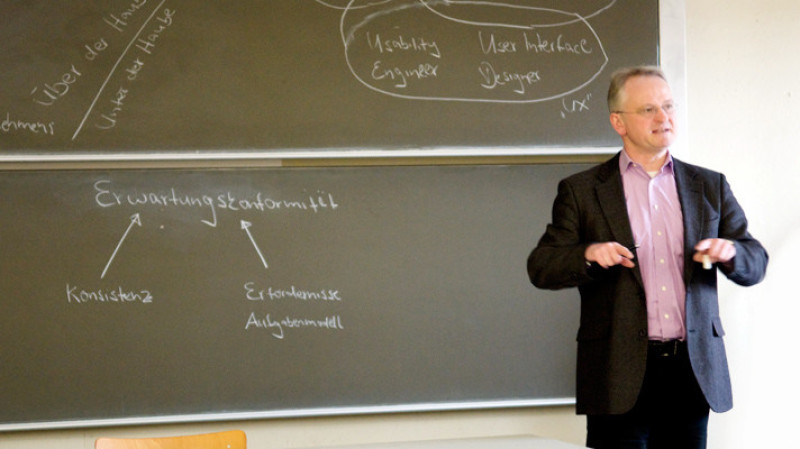 Über der Haube
Unter der Haube
Usability User Interface
Engineer Designer
„UX“
Erwartungskonformität
Konsistenz
Erfordernisse
Aufgabenmodell